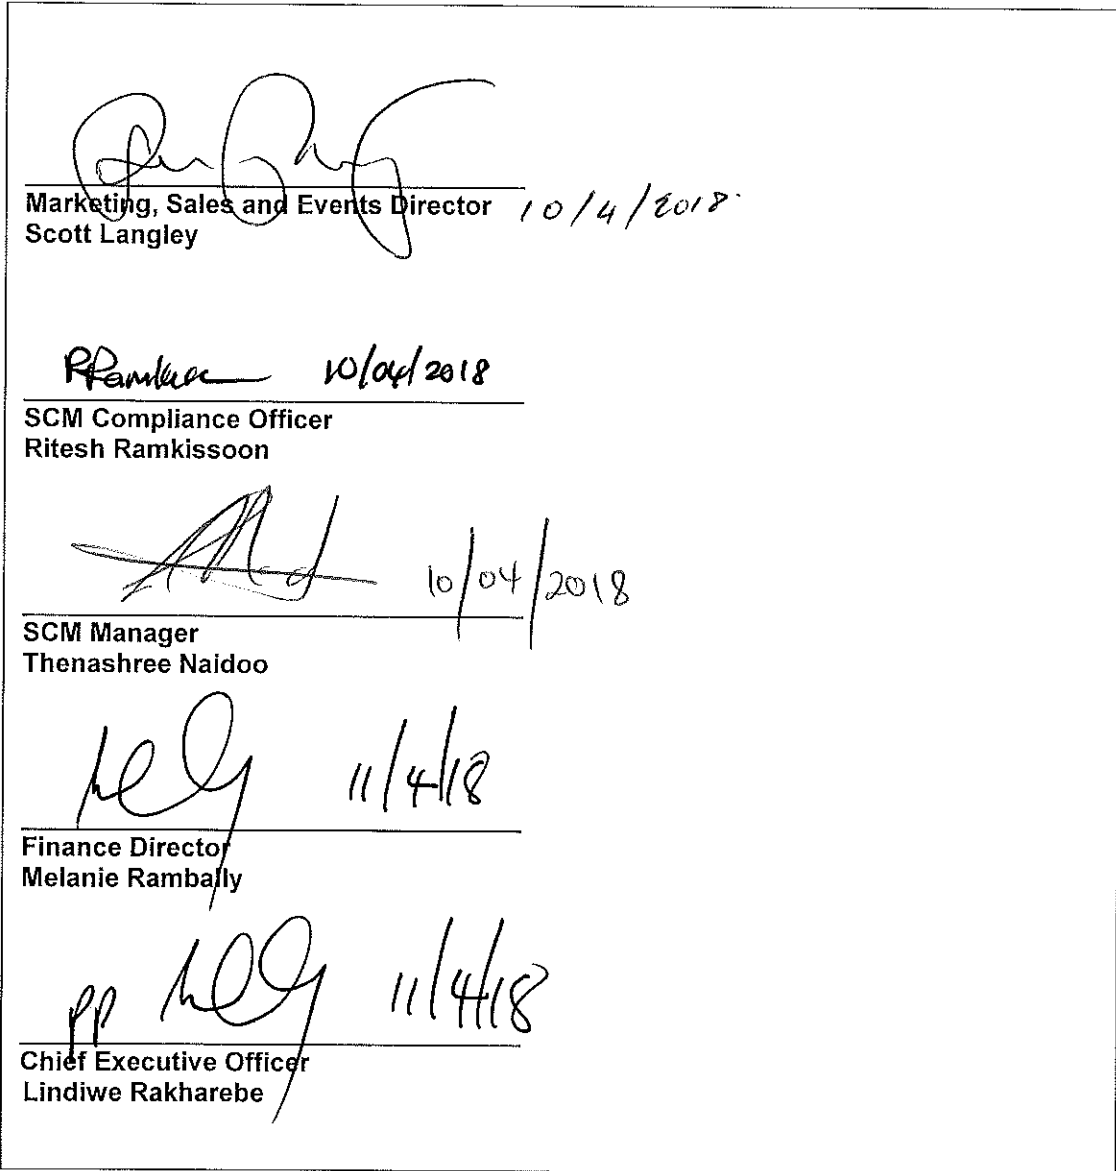 Marketing, Sales and Events Director 10/4/2018
Scott Langley
10/04/2018
SCM Compliance Officer
Ritesh Ramkissoon
10/04/2018
SCM Manager
Thenashree Naidoo
11/4/18
Finance Director
Melanie Rambally
pp 11/4/18
Chief Executive Officer
Lindiwe Rakharebe